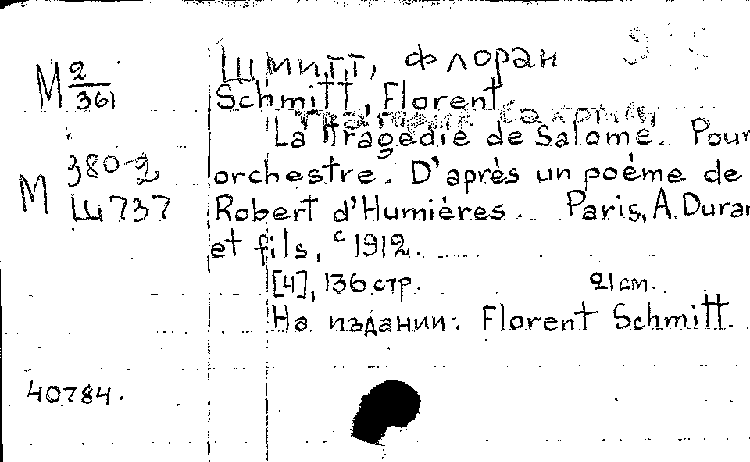 М 2/361
Шмитт, Флоран
Schmitt, Florent
La Tragédie de Salomé. Pour
orchestre. D'après un poème de
Robert d'Humières. Paris, A. Duran
et fils, c 1912.
[4], 136 стр. 21 см.
На издании: Florent Schmitt.
М 380-2
Ш 737
40784.